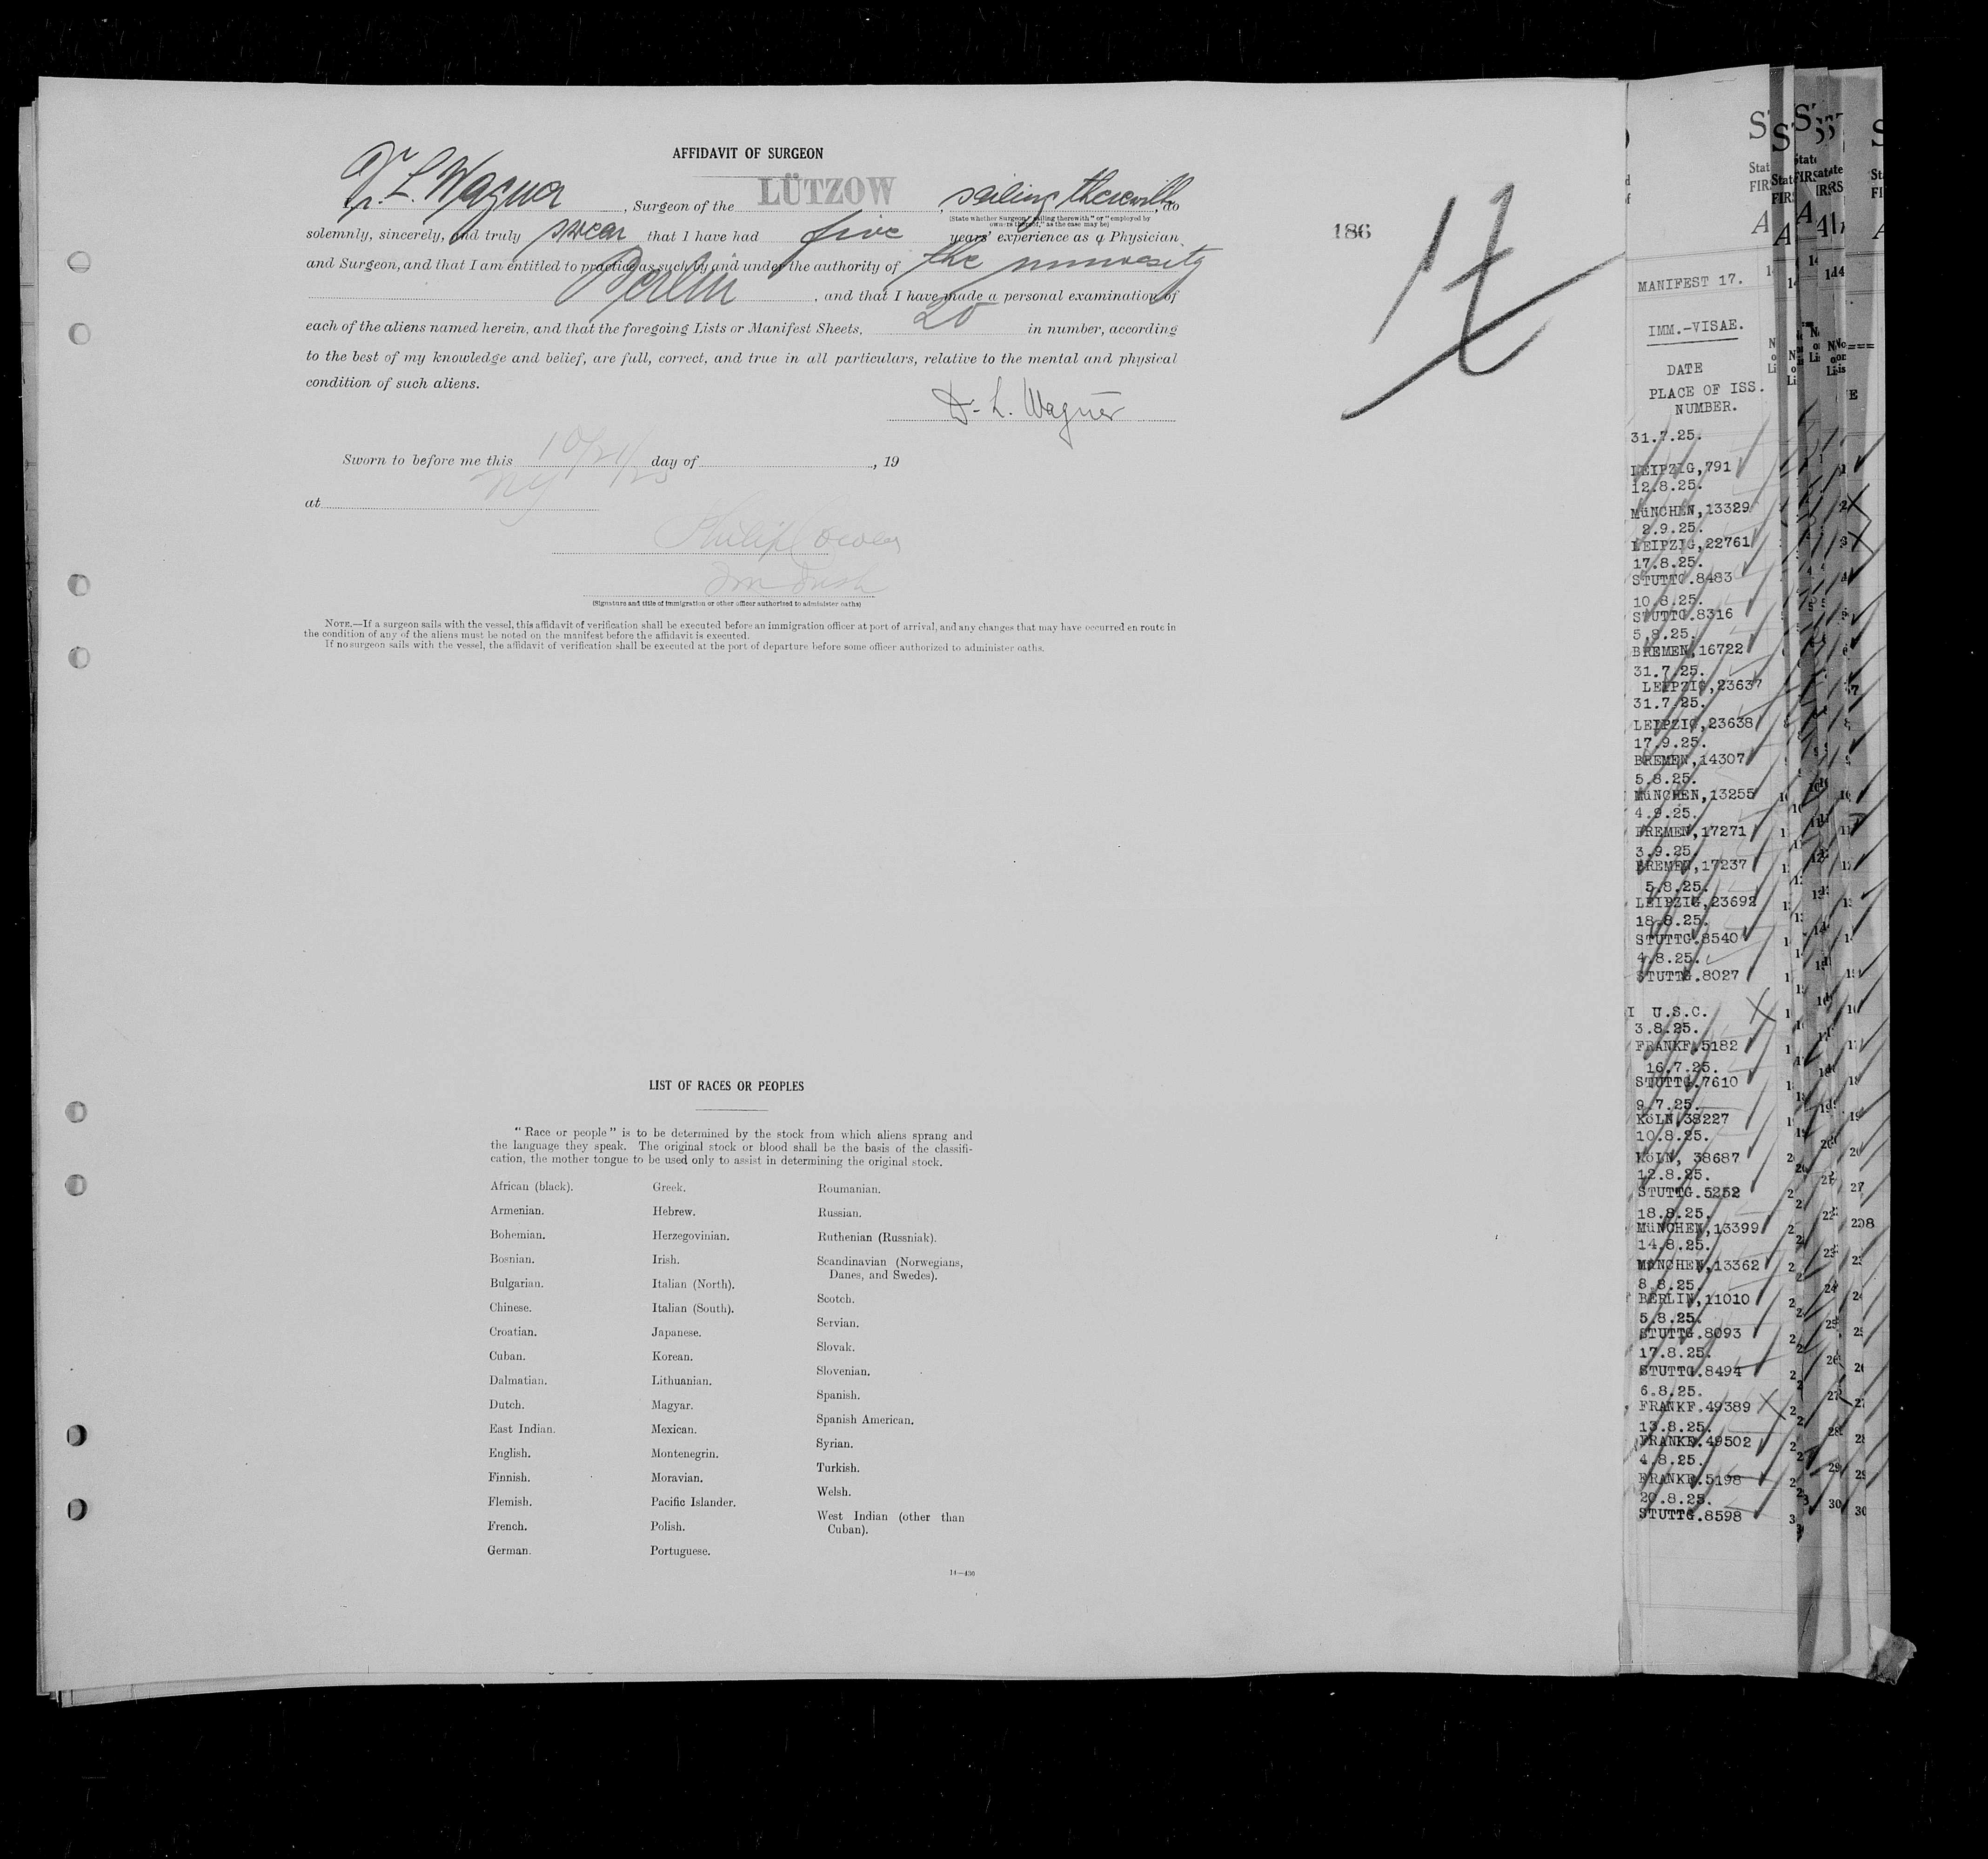 AFFIDAVIT OF SURGEON
Dr. L. Wagner, Surgeon of the LÜTZOW, sailing therewith, do
(State whether Surgeon "sailing therewith" or "employed by
owners thereof," as the case may be)
solemnly, sincerely, and truly swear that I have had five years' experience as a Physician
and Surgeon, and that I am entitled to practice as such by and under the authority of the university
Berlin, and that I have made a personal examination of
each of the aliens named herein, and that the foregoing Lists or Manifest Sheets, 20 in number, according
to the best of my knowledge and belief, are full, correct, and true in all particulars, relative to the mental and physical
condition of such aliens.
Dr. L. Wagner
Sworn to before me this 10/21/25 day of , 19
at NY
Philip
(Signature and title of immigration or other officer authorized to administer oaths)
NOTE.—If a surgeon sails with the vessel, this affidavit of verification shall be executed before an immigration officer at port of arrival, and any changes that may have occurred en route in
the condition of any of the aliens must be noted on the manifest before the affidavit is executed.
If no surgeon sails with the vessel, the affidavit of verification shall be executed at the port of departure before some officer authorized to administer oaths.
186
LIST OF RACES OR PEOPLES
"Race or people" is to be determined by the stock from which aliens sprang and
the language they speak. The original stock or blood shall be the basis of the classifi-
cation, the mother tongue to be used only to assist in determining the original stock.
African (black).
Armenian.
Bohemian.
Bosnian.
Bulgarian.
Chinese.
Croatian.
Cuban.
Dalmatian.
Dutch.
East Indian.
English.
Finnish.
Flemish.
French.
German.
Greek.
Hebrew.
Herzegovinian.
Irish.
Italian (North).
Italian (South).
Japanese.
Korean.
Lithuanian.
Magyar.
Mexican.
Montenegrin.
Moravian.
Pacific Islander.
Polish.
Portuguese.
Roumanian.
Russian.
Ruthenian (Russniak).
Scandinavian (Norwegians,
Danes, and Swedes).
Scotch.
Servian.
Slovak.
Slovenian.
Spanish.
Spanish American.
Syrian.
Turkish.
Welsh.
West Indian (other than
Cuban).
14—430
MANIFEST 17.
IMM.-VISAE.
DATE
PLACE OF ISS.
NUMBER.
31.7.25.
LEIPZIG,791
12.8.25.
MüNCHEN,13329
2.9.25.
LEIPZIG,22761
17.8.25.
STUTTG.8483
10.8.25.
STUTTG.8316
5.8.25.
BREMEN,16722
31.7.25.
LEIPZIG,23637
31.7.25.
LEIPZIG,23638
17.9.25.
BREMEN,14307
5.8.25.
MüNCHEN,13255
4.9.25.
BREMEN,17271
3.9.25.
BREMEN,17237
5.8.25.
LEIPZIG,23692
18.8.25.
STUTTG.8540
4.8.25.
STUTTG.8027
U.S.C.
3.8.25.
FRANKF.5182
16.7.25.
STUTTG.7610
9.7.25.
KöLN,38227
10.8.25.
KöLN, 38687
12.8.25.
STUTTG.5252
18.8.25.
MüNCHEN,13399
14.8.25.
MüNCHEN,13362
8.8.25.
BERLIN,11010
5.8.25.
STUTTG.8093
17.8.25.
STUTTG.8494
6.8.25.
FRANKF.49389
13.8.25.
FRANKF.49502
4.8.25.
FRANKF.5198
20.8.25.
STUTTG.8598